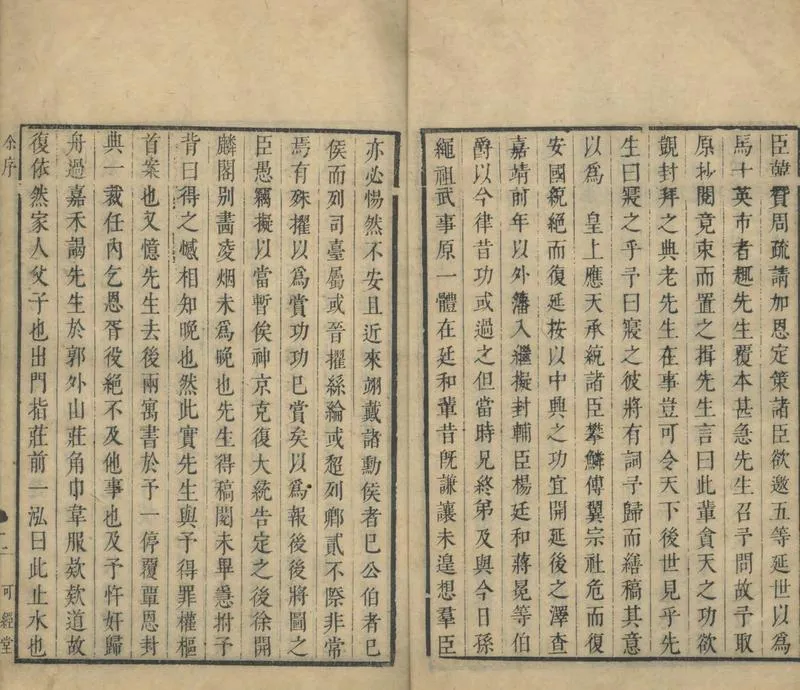 臣韓贊周疏請加恩定策諸臣欲邀五等延世以爲
馬士英市者趣先生覆本甚急先生召予問故予取
原抄閱竟束而置之揖先生言曰此輩貪天之功欲
覬封拜之典老先生在事豈可令天下後世見乎先
生曰寢之乎予曰寢之彼將有詞予歸而繕稿其意
以爲　皇上應天承統諸臣攀鱗傅翼宗社危而復
安國統絕而復延按以中興之功宜開延後之澤查
嘉靖前年以外藩入繼擬封輔臣楊廷和蔣冕等伯
爵以今律昔功或過之但當時兄終弟及與今日孫
繩祖武事原一體在廷和輩昔旣謙讓未遑想羣臣
亦必惕然不安且近來翊戴諸勳侯者巳公伯者巳
侯而列司臺屬或晉擢絲綸或超列卿貳不際非常
焉有殊擢以爲賞功功巳賞矣以爲報後後將圖之
臣愚竊擬以當暫俟神京克復大統告定之後徐開
麟閣別畵凌烟未爲晚也先生得稿閱未畢急拊予
背曰得之憾相知晚也然此實先生與予得罪權樞
首案也又憶先生去後兩寓書於予一停覆覃恩封
典一裁任內乞恩胥役絕不及他事也及予忤奸歸
舟過嘉禾謁先生於郭外山莊角巾韋服欸欸道故
復依然家人父子也出門指莊前一泓曰此止水也
余序
二
可經堂